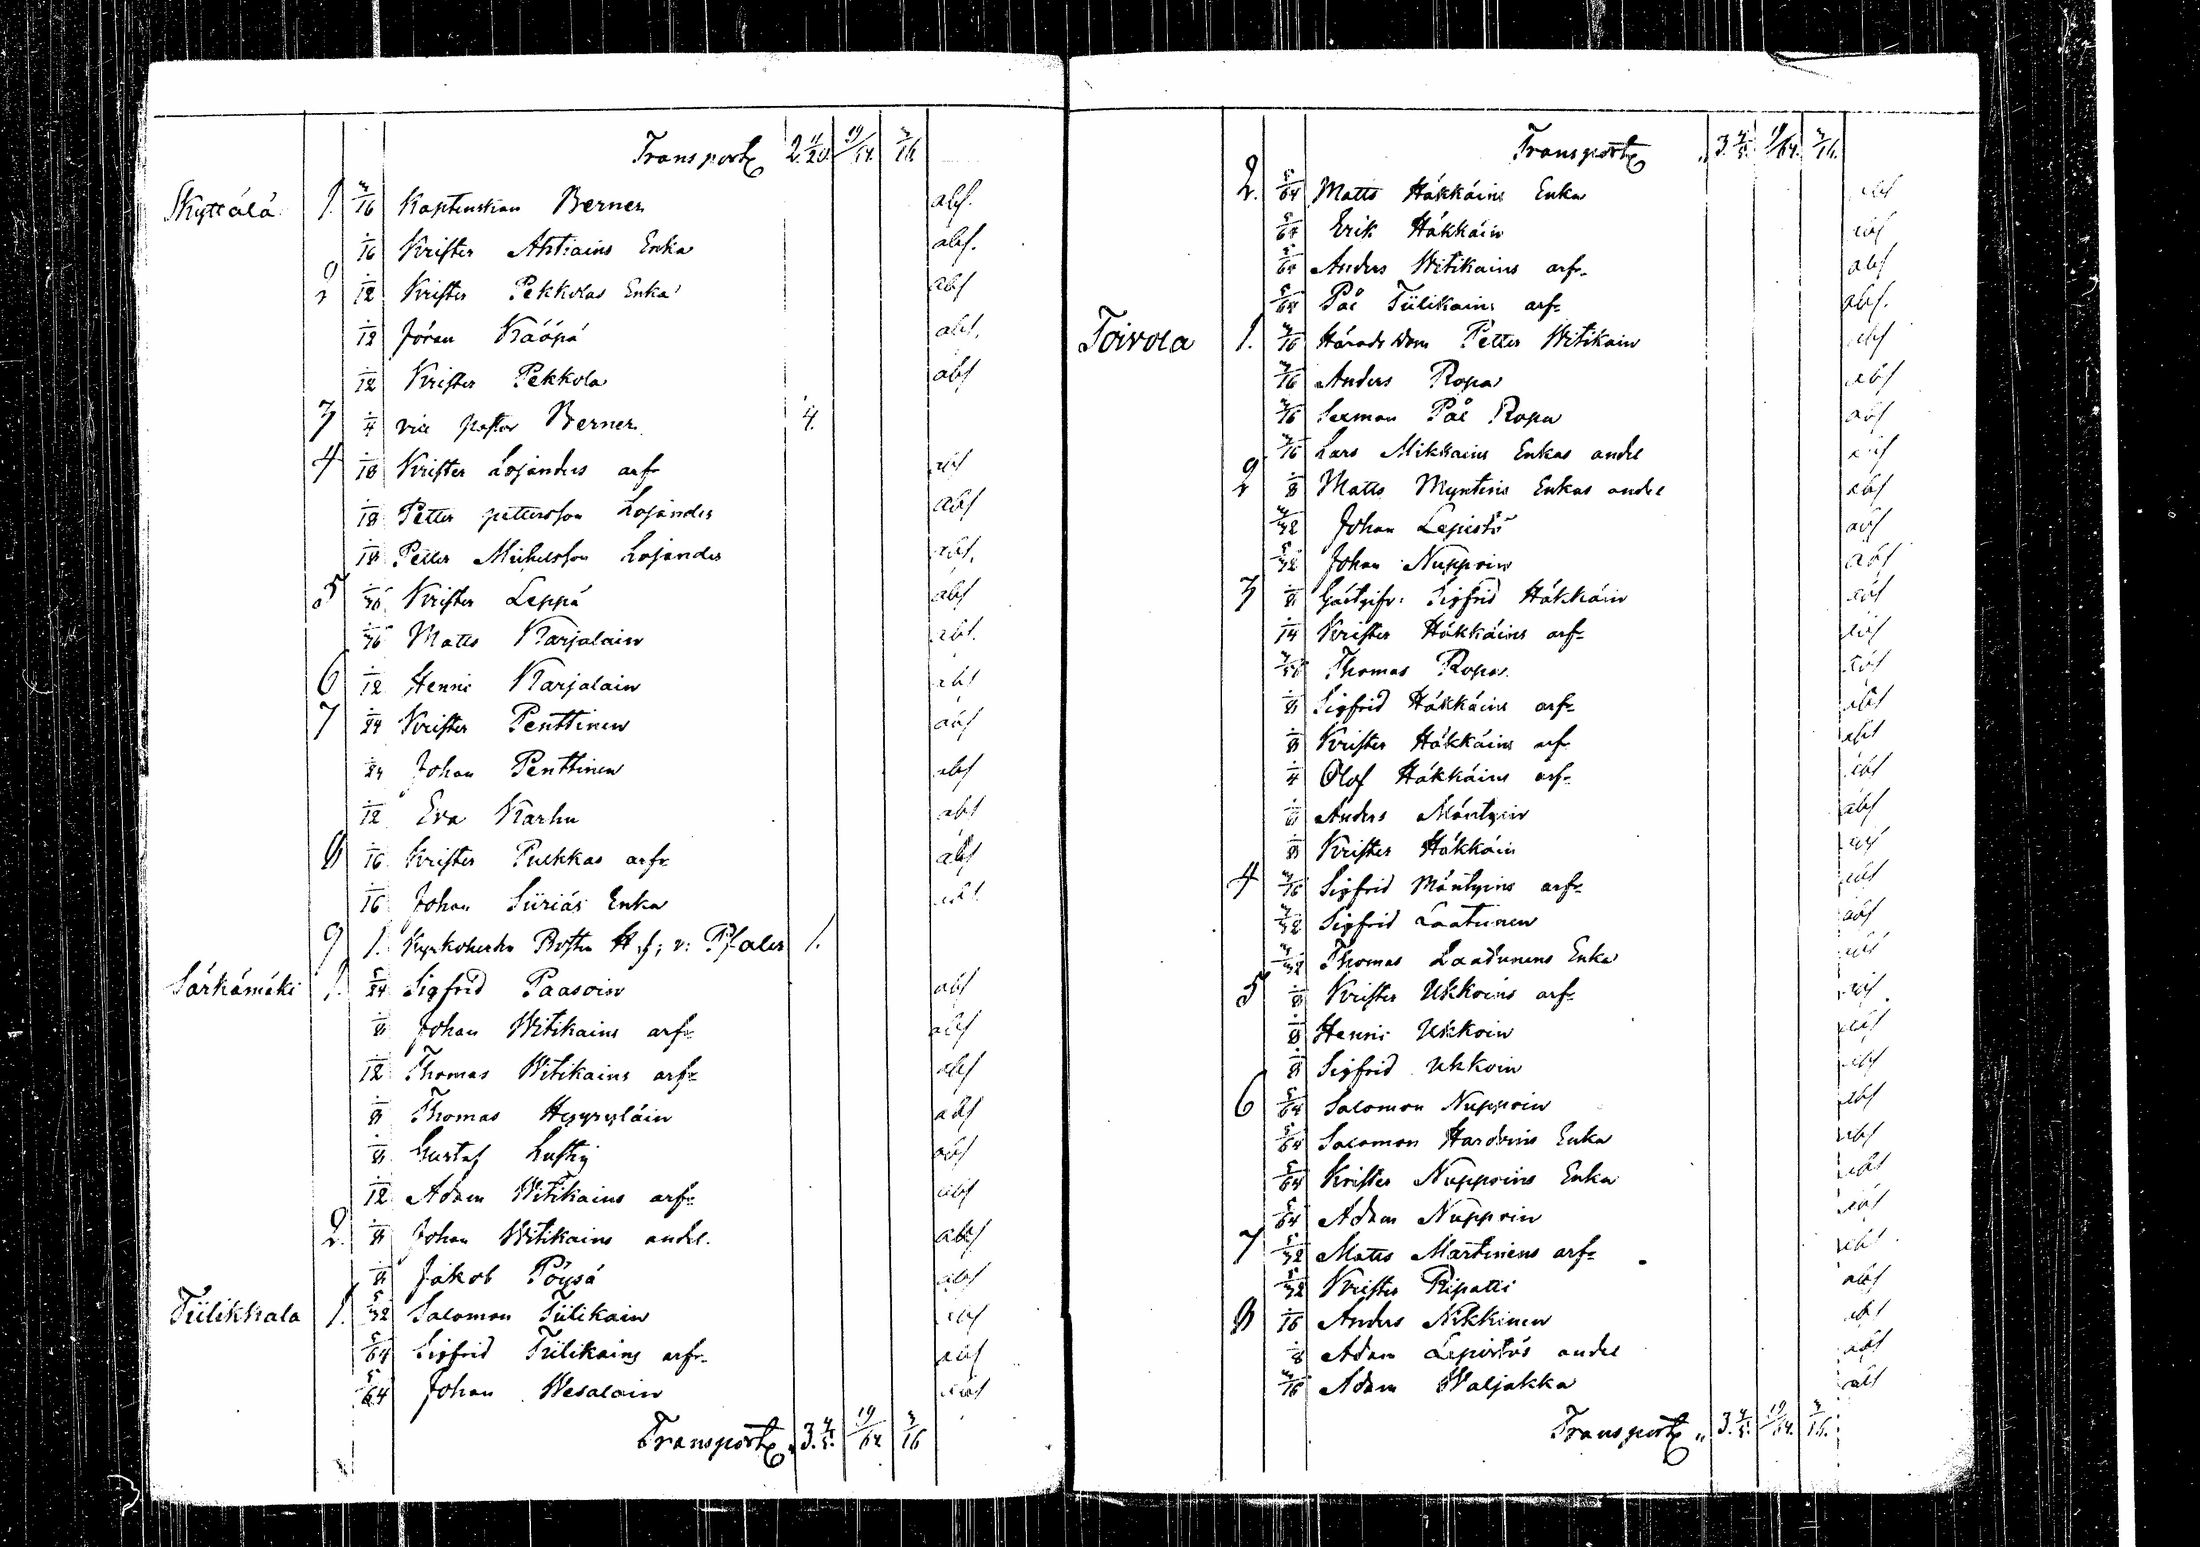 Transport 2. 11/20 19/64. 3/16
Skyttälä 1. 3/16 Kaptenskan Berner abs.
1/16 Krister Ahtiains Enka abs.
2 1/12 Krister Pekkolas Enka abs
1/12 Jöran Kääpä abs.
1/12 Krister Pekkola abs
3 1/4 vice pastor Berner 1/4.
4 1/18 Krister Lojanders arfr abs
1/18 Petter pettersson Lojander abs
1/18 Petter Michelsson Lojander abs.
5 Krister Leppä abs
Matts Karjalain abs.
6 1/12 Henric Karjalain abs
7 1/24 Krister Penttinen abs
1/24 Johan Penttinen abs
1/12 Eva Karhu abs
8 1/16 Krister Pulkkas arfr abs
1/16 Johan Siiriäs Enka abs
9 1. Kyrkoherden v: Pfaler 1.
Särkämäki 1. 5/24 Sigfrid Paasoin abs
1/8 Johan Witikains arfr abs
1/12 Thomas Witikains arfr abs
1/8 Thomas Hyyryläin abs
1/8 Gustaf Lustig abs
1/12 Adam Witikains arfr abs
2. 1/8 Johan Witikains andel. abs
1/8 Jakob Pöysä abs
Tiilikkala 1. 5/32 Salomon Tiilikain abs
5/64 Sigfrid Tiilikains arfr. abs
5/64 Johan Wesalain abs
Transport 3. 4/5. 19/64 3/16
Transport 3. 4/5. 19/64. 3/16.
2. 5/64 Matts Häkkäins Enka abs
5/64 Erik Häkkäin abs
5/64 Anders Witikains arfr abs
5/64 Pål Tiilikains arfr abs.
Toivola 1. 3/16 Härads Dom Petter Witikain abs
3/16 Anders Ropa abs
3/16 Sexman Pål Ropa abs
3/16 Lars Mikkains Enkas andel abs
2 1/8 Matts Myntins Enkas andel abs
3/32 Johan Lepistö abs
5/32 Johan Nuppoin abs
3 1/8 Gästgifv: Sigfrid Häkkäin abs
1/14 Krister Häkkäins arfr abs
Thomas Ropa abs
1/8 Sigfrid Häkkäins arfr abs
1/8 Krister Häkkäins arfr abs
1/4 Olof Häkkäins arfr abs
1/8 Anders Mäntyin abs
1/8 Krister Häkkäin abs
4 3/16 Sigfrid Mäntyins arfr abs
3/32 Sigfrid Laatunen abs
3/32 Thomas Laatunens Enka abs
5 1/8 Krister Ukkoins arfr abs
1/8 Henric Ukkoin abs
1/8 Sigfrid Ukkoin abs
6 5/64 Salomon Nuppoin abs
5/64 Salomon Enka abs
5/64 Krister Nuppoins Enka abs
5/64 Adam Nuppoin abs
7 5/32 Matts Martinens arfr abs
5/32 Krister Ripatti abs
8 1/16 Anders Nikkinen abs
1/8 Adam Lepistös andel abs
3/16 Adam Waljakka abs
Transport 3. 4/5. 19/64. 3/16.